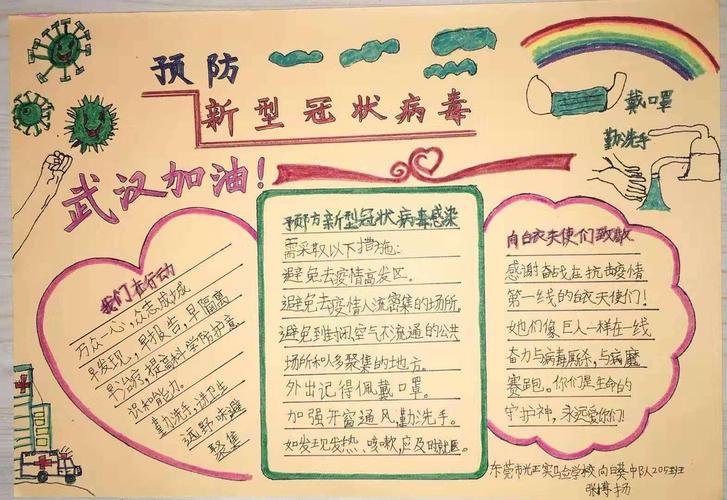 预防
新型冠状病毒
戴口罩
勤洗手
武汉加油!
我们在行动
万众一心,众志成城
早发现,早报告,早隔离
早治疗,提高科学防护意
识和能力。
勤洗手,讲卫生
远野味,避
聚集
预防新型冠状病毒感染
需采取以下措施:
避免去疫情高发区。
避免去疫情人流密集的场所,
避免到封闭空气不流通的公共
场所和人多聚集的地方。
外出记得佩戴口罩。
加强开窗通风,勤洗手。
如发现发热,咳嗽,应及时就医。
向白衣天使们致敬
感谢奋战在抗击疫情
第一线的白衣天使们!
她们像巨人一样在一线
奋力与病毒厮杀,与病魔
赛跑。你们是生命的
守护神,永远爱你们!
东莞市光正实验学校向日葵中队205班
张博扬